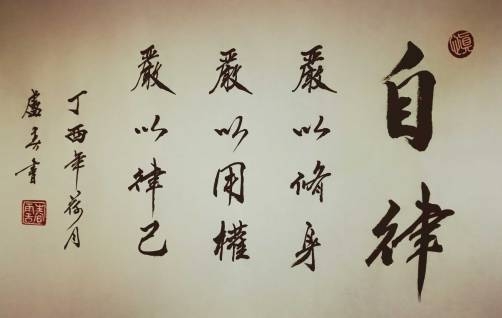 自律
嚴以修身
嚴以用權
嚴以律己
丁酉年荷月